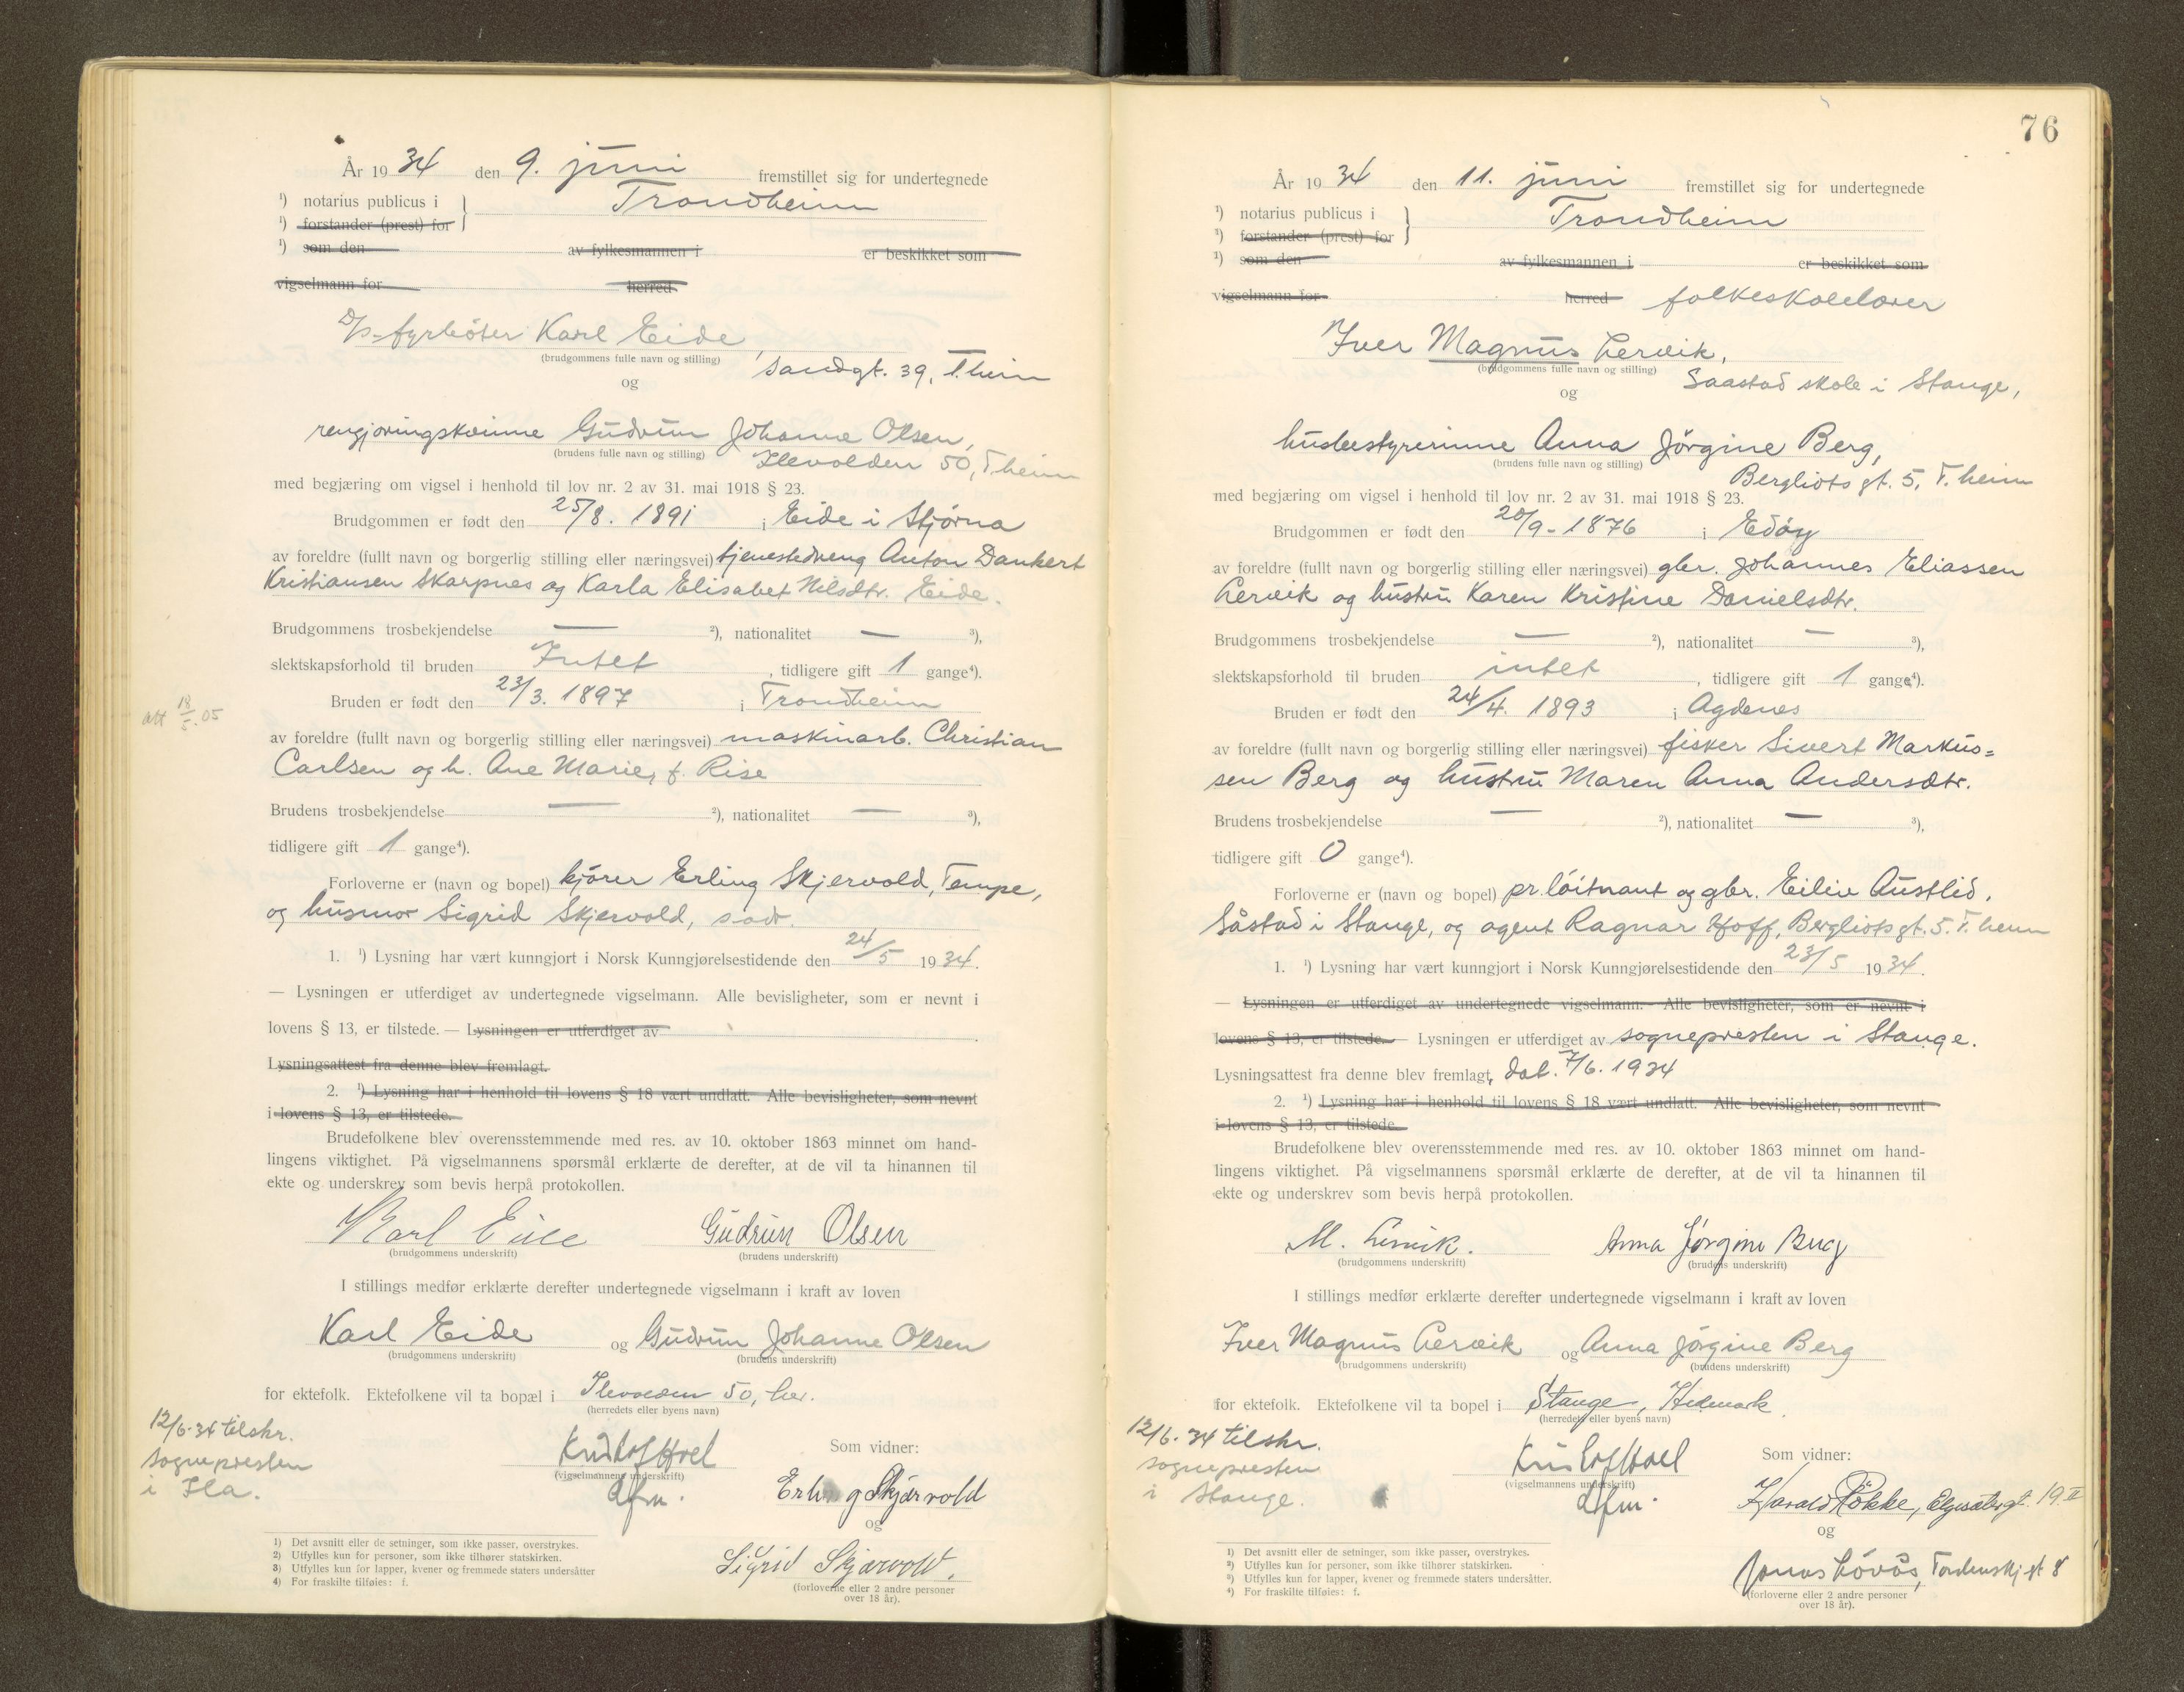 År 1934 den 9. juni fremstillet sig for undertegnede
¹) notarius publicus i } Trondheim
¹) forstander (prest) for
¹) som den av fylkesmannen i er beskikket som
vigselmann for herred
D/s-fyrbøter Karl Eide,
(brudgommens fulle navn og stilling)
Sandgt. 39, T.heim
og
rengjøringskvinne Gudrun Johanne Olsen,
(brudens fulle navn og stilling)
Ilevolden 50, T.heim
med begjæring om vigsel i henhold til lov nr. 2 av 31. mai 1918 § 23.
Brudgommen er født den 25/8. 1891 i Eide i Stjørna
av foreldre (fullt navn og borgerlig stilling eller næringsvei) tjenestedreng Anton Dankert
Kristiansen Skarpnes og Karla Elisabet Nilsdtr. Eide.
Brudgommens trosbekjendelse — ²), nationalitet — ³),
slektskapsforhold til bruden Intet, tidligere gift 1 gange⁴).
Bruden er født den 23/3. 1897 i Trondheim
att 18/5. 05
av foreldre (fullt navn og borgerlig stilling eller næringsvei) maskinarb. Christian
Carlsen og h. Ane Marie, f. Rise
Brudens trosbekjendelse — ²), nationalitet — ³),
tidligere gift 1 gange⁴).
Forloverne er (navn og bopel) kjører Erling Skjervold, Tempe,
og husmor Sigrid Skjervold, s adr.
1. ¹) Lysning har vært kunngjort i Norsk Kunngjørelsestidende den 24/5 1934.
— Lysningen er utferdiget av undertegnede vigselmann. Alle bevisligheter, som er nevnt i
lovens § 13, er tilstede. — Lysningen er utferdiget av
Lysningsattest fra denne blev fremlagt.
2. ¹) Lysning har i henhold til lovens § 18 vært undlatt. Alle bevisligheter, som nevnt
i lovens § 13, er tilstede.
Brudefolkene blev overensstemmende med res. av 10. oktober 1863 minnet om hand-
lingens viktighet. På vigselmannens spørsmål erklærte de derefter, at de vil ta hinannen til
ekte og underskrev som bevis herpå protokollen.
Karl Eide Gudrun Olsen
(brudgommens underskrift) (brudens underskrift)
I stillings medfør erklærte derefter undertegnede vigselmann i kraft av loven
Karl Eide og Gudrun Johanne Olsen
(brudgommens underskrift) (brudens underskrift)
for ektefolk. Ektefolkene vil ta bopæl i Ilevolden 50, her.
(herredets eller byens navn)
12/6.34 tilskr.
sognepresten
i Ila.
Som vidner:
(vigselmannens underskrift)
Erling Skjærvold
og
Sigrid Skjærvold.
(forloverne eller 2 andre personer
over 18 år).
1) Det avsnitt eller de setninger, som ikke passer, overstrykes.
2) Utfylles kun for personer, som ikke tilhører statskirken.
3) Utfylles kun for lapper, kvener og fremmede staters undersåtter
4) For fraskilte tilføies: f.
76
År 1934 den 11. juni fremstillet sig for undertegnede
¹) notarius publicus i } Trondheim
¹) forstander (prest) for
¹) som den av fylkesmannen i er beskikket som
vigselmann for herred folkeskolelærer
Iver Magnus Lervik,
(brudgommens fulle navn og stilling)
Saastad skole i Stange,
og
husbestyrerinne Anna Jørgine Berg,
(brudens fulle navn og stilling)
Bergliots gt. 5, T.heim
med begjæring om vigsel i henhold til lov nr. 2 av 31. mai 1918 § 23.
Brudgommen er født den 20/9-1876 i Edøy
av foreldre (fullt navn og borgerlig stilling eller næringsvei) gbr. Johannes Eliassen
Lervik og hustru Karen Kristine Danielsdtr.
Brudgommens trosbekjendelse — ²), nationalitet — ³),
slektskapsforhold til bruden intet, tidligere gift 1 gange⁴).
Bruden er født den 24/4. 1893 i Agdenes
av foreldre (fullt navn og borgerlig stilling eller næringsvei) fisker Sivert Markus=
sen Berg og hustru Maren Anna Andersdtr.
Brudens trosbekjendelse — ²), nationalitet — ³),
tidligere gift 0 gange⁴).
Forloverne er (navn og bopel) pr.løitnant og gbr. Eiliv Austlid,
Såstad i Stange, og agent Ragnar Hoff, Bergliotsgt. 5. T.heim
1. ¹) Lysning har vært kunngjort i Norsk Kunngjørelsestidende den 23/5 1934.
— Lysningen er utferdiget av undertegnede vigselmann. Alle bevisligheter, som er nevnt i
lovens § 13, er tilstede. — Lysningen er utferdiget av sognepresten i Stange.
Lysningsattest fra denne blev fremlagt, dat. 7/6. 1934
2. ¹) Lysning har i henhold til lovens § 18 vært undlatt. Alle bevisligheter, som nevnt
i lovens § 13, er tilstede.
Brudefolkene blev overensstemmende med res. av 10. oktober 1863 minnet om hand-
lingens viktighet. På vigselmannens spørsmål erklærte de derefter, at de vil ta hinannen til
ekte og underskrev som bevis herpå protokollen.
M. Lervik. Anna Jørgine Berg
(brudgommens underskrift) (brudens underskrift)
I stillings medfør erklærte derefter undertegnede vigselmann i kraft av loven
Iver Magnus Lervik og Anna Jørgine Berg
(brudgommens underskrift) (brudens underskrift)
for ektefolk. Ektefolkene vil ta bopel i Stange, Hedmark.
(herredets eller byens navn)
12/6. 34 tilskr.
sognepresten
i Stange.
Som vidner:
(vigselmannens underskrift)
Harald Røkke, Elgesætergt. 19 II
og
Jonas Løvås, Tordenskj.gt 8
(forloverne eller 2 andre personer
over 18 år).
1) Det avsnitt eller de setninger, som ikke passer, overstrykes.
2) Utfylles kun for personer, som ikke tilhører statskirken.
3) Utfylles kun for lapper, kvener og fremmede staters undersåtter.
4) For fraskilte tilføies: f.